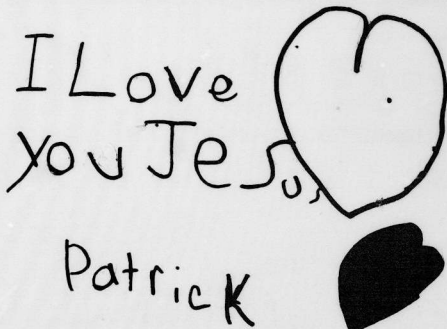 I Love
you Jesus
Patrick